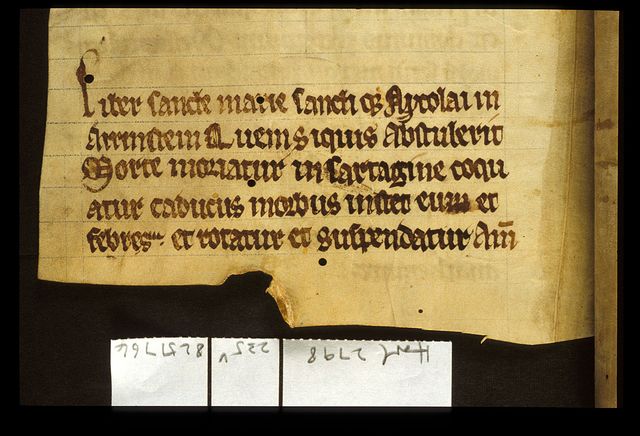 Liber sancte marie sancti qʒ Nycolai in
Arrinstein Quem siquis abstulerit
Morte moriatur in sartagine coqu
atur caducus morbus instet eum et
febres et rotatur et suspendatur Am̅
Harl 2798
225v
8251766